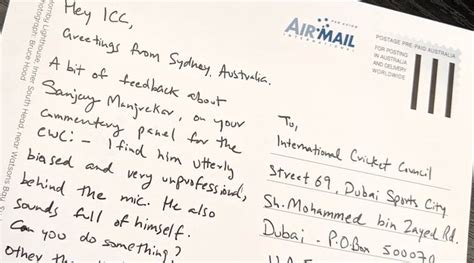 Hey ICC,
Greetings from Sydney, Australia.
A bit of feedback about
Sanjay Manjrekar, on your
commentary panel for the
CWC:- I find him utterly
biased and very unprofessional,
behind the mic. He also
sounds full of himself.
Can you do something?
Other tha
PAR AVION
AIR MAIL
INTERNATIONAL
POSTAGE PRE-PAID AUSTRALIA
FOR POSTING
IN AUSTRALIA
AND DELIVERY
WORLDWIDE
To,
International Cricket Council
Street 69, Dubai Sports City
Sh. Mohammed bin Zayed Rd.
Dubai. P.O.Box 500070
Lighthouse, Inner South Head, near Watsons Bay, S